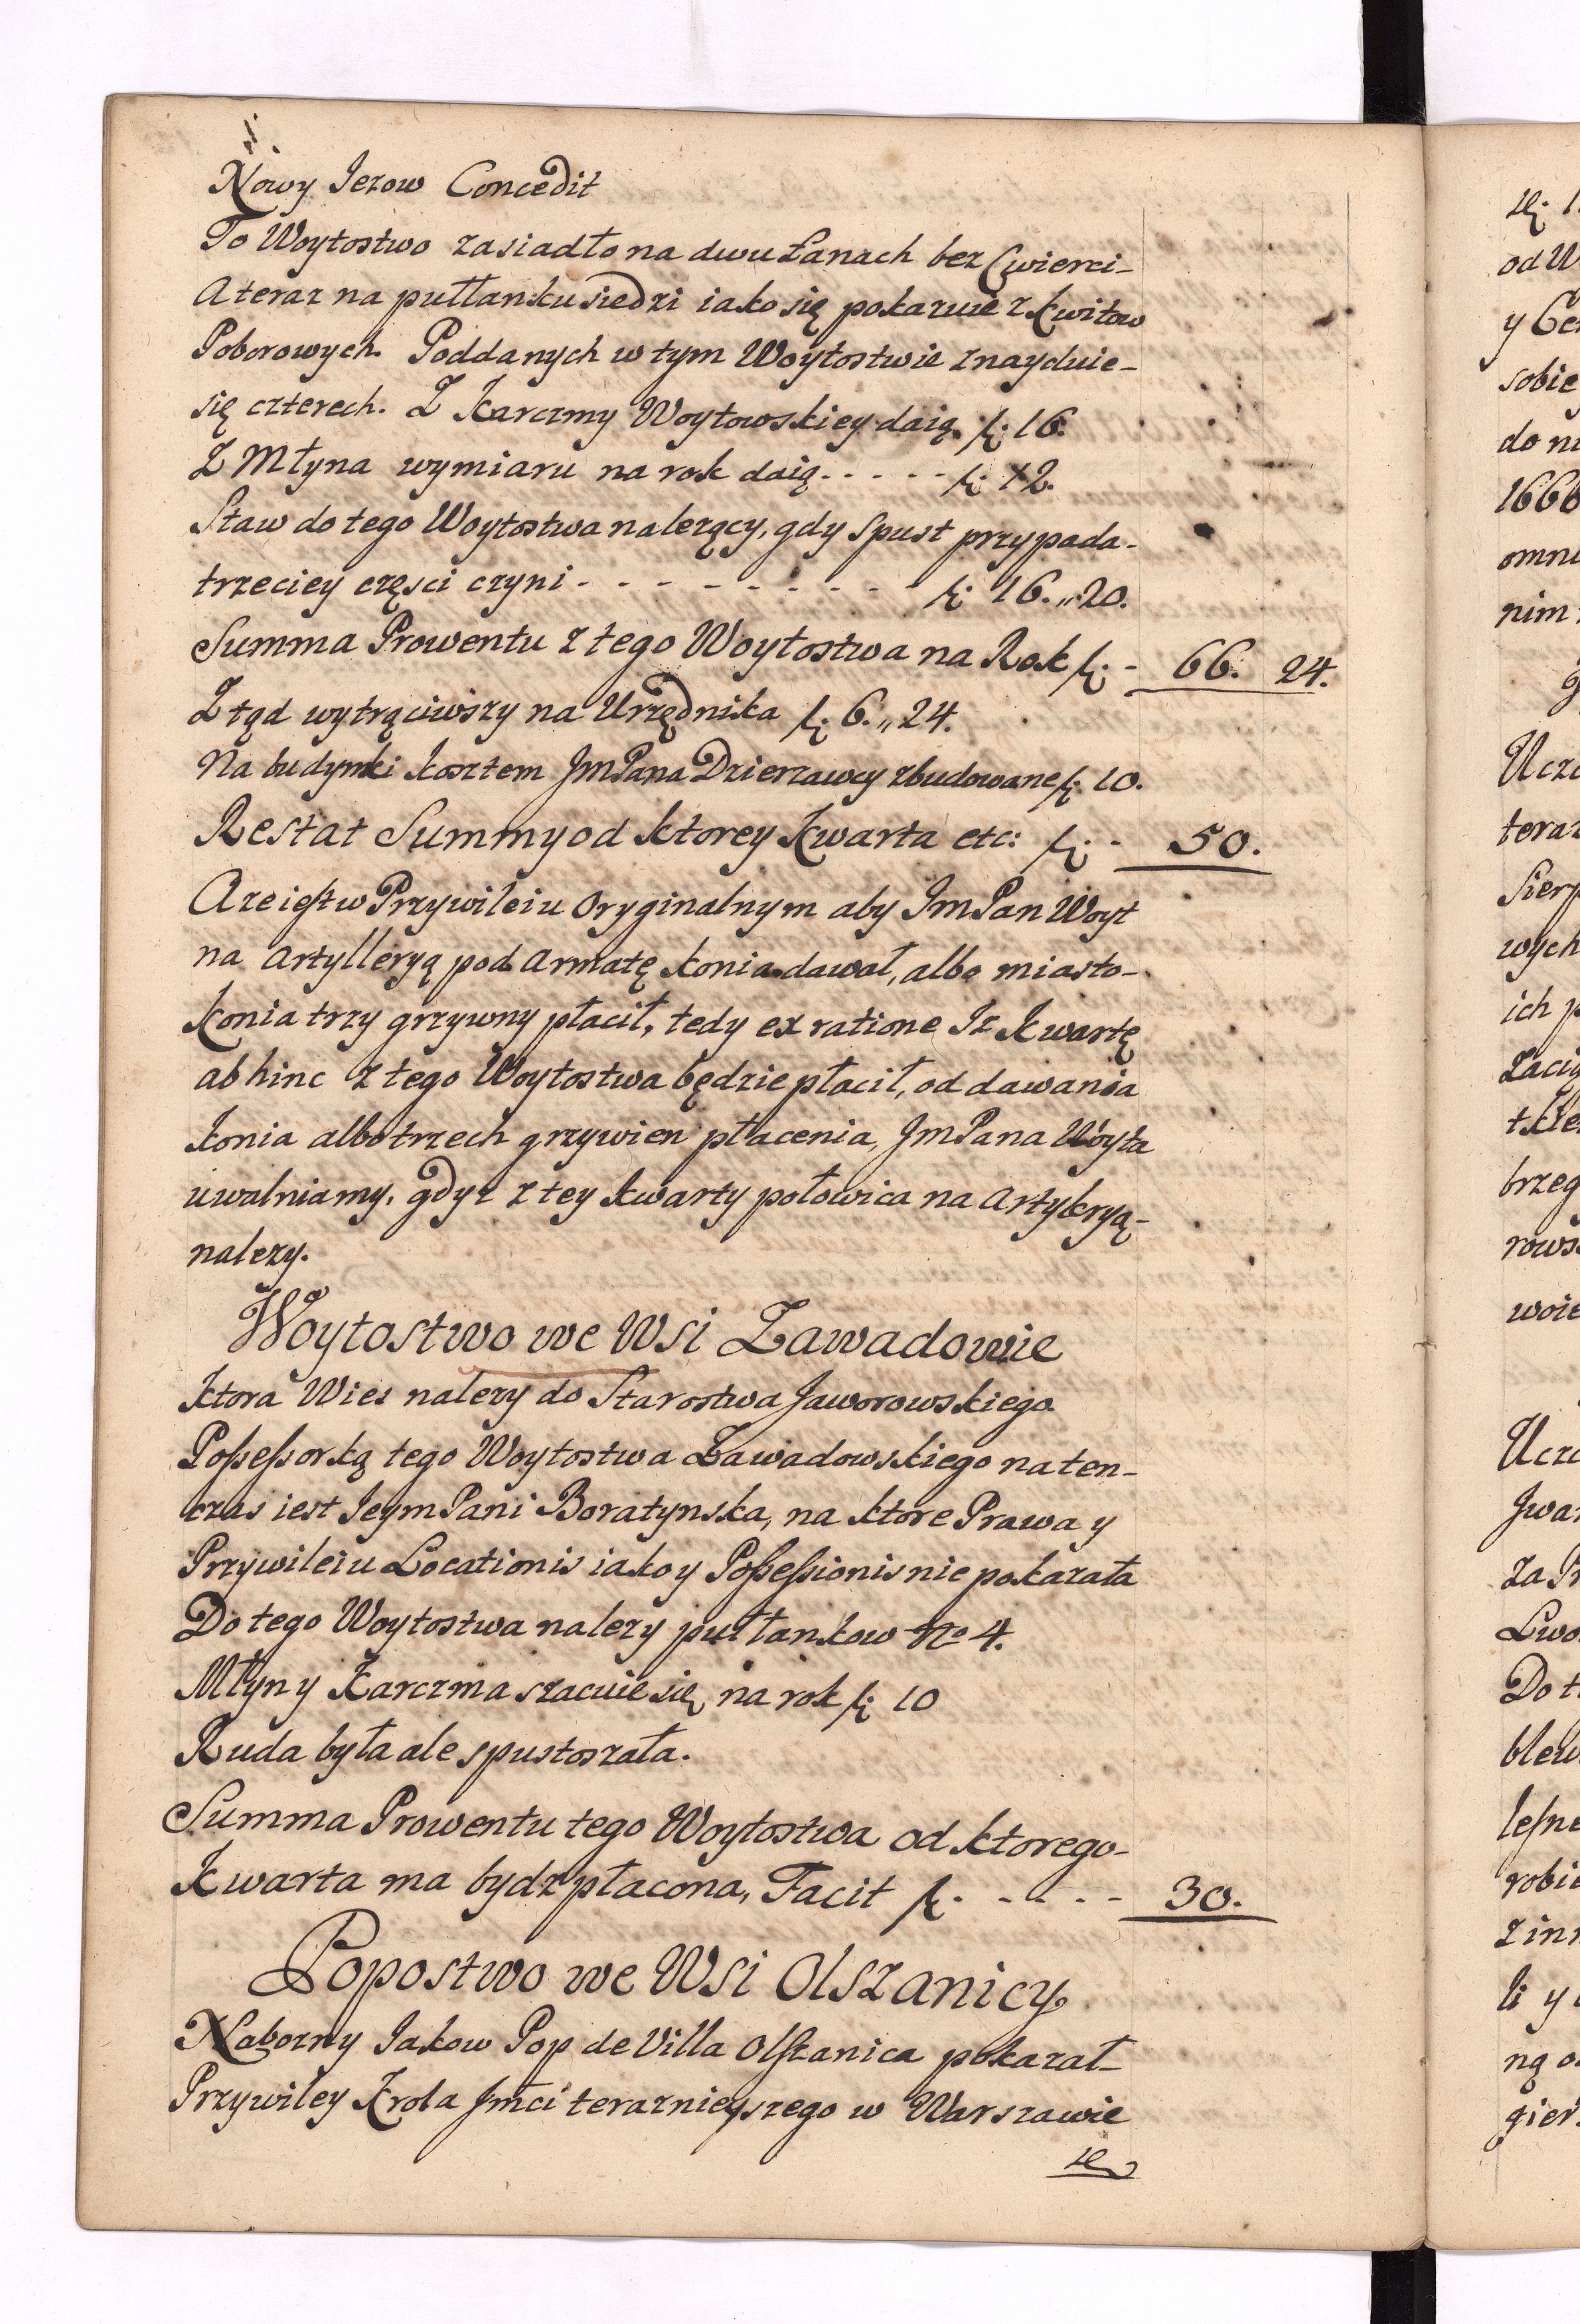 Nowy Jezow Concedit
To Woytostwo zasiadło na dwu Łanach bez Cwierci-
A teraz na pułłanku siedzi iako się pokazuie z Kwitow
Poborowych. Poddanych w tym Woytostwie znayduie-
się czterech. Z Karczmy Woytowskiey daią. f: 16.
Z Młyna wymiaru na rok daią - - - - - f: 12.
Staw do tego Woytostwa nalezący, gdy spust przypada-
trzeciey częsci czyni - - - - - - - - f: 16.„20.
Summa Prowentu z tego Woytostwa na Rok f: - 66. 24.
Ztąd wytrąciwszy na Urzędnika f: 6.„24.
Na budynki kosztem JmPana Dzierzawcy zbudowane f: 10.
Restat Summy od ktorey Kwarta etc: f: - 50.
A ze iest w Przywileiu Oryginalnym aby JmPan Woyt
na Artylleryą pod Armatę konia dawał, albo miasto-
konia trzy grzywny płacił, tedy ex ratione Iz Kwartę
ab hinc z tego Woytostwa będzie płacił, od dawania
konia albo trzech grzywien płacenia, JmPana Woyta
uwalniamy, gdyz z tey kwarty połowica na Artyleryą-
nalezy.
Woytostwo we Wsi Zawadowie
Ktora Wies nalezy do Starostwa Jaworowskiego
Possessorką tego Woytostwa Zawadowskiego na ten-
czas iest JeymPani Boratynska, na ktore Prawa y
Przywileiu Locationis iako y Possessionis nie pokazała
Do tego Woytostwa nalezy pułłankow No 4.
Młyn y Karczma szacuie się na rok f: 10
Ruda była ale spustoszała.
Summa Prowentu tego Woytostwa od ktorego-
Kwarta ma bydz płacona, Facit f. - - - - 30.
Popostwo we Wsi Olszanicy
Nabozny Jakow Pop de Villa Olszanica pokazał-
Przywiley Krola Jmci teraznieyszego w Warszawie
od W
y Ce
sobie
do n
1660
omn
nim
Ucz
teraz
Sierp
wych
ich p
brzeg
rows
woie
Ucz
Jwa
za P
Lwo
Do t
blew
robi
z in
li y
ną o
gier